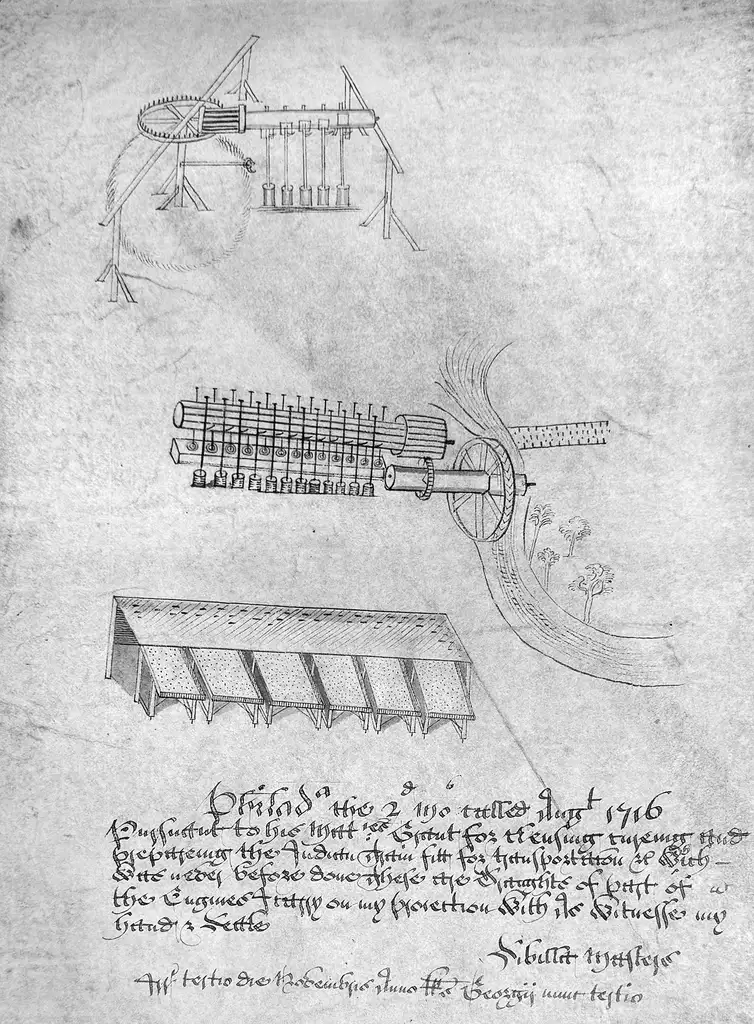 Philadᵃ the 2ᵈ mo called Augᵗ 1716
Pursuant to his Matᵗⁱᵉˢ Grant for Clensing Cureing and
prepareing the Indian Grain fitt for transportation &c Which
Was never before done These are Draughts of part of
the Engines I carry on my proiection With As Witnesse my
hand & Seale
Sibilla Masters
tertio die Novembris Anno RRˢ Georgij nunc tertio